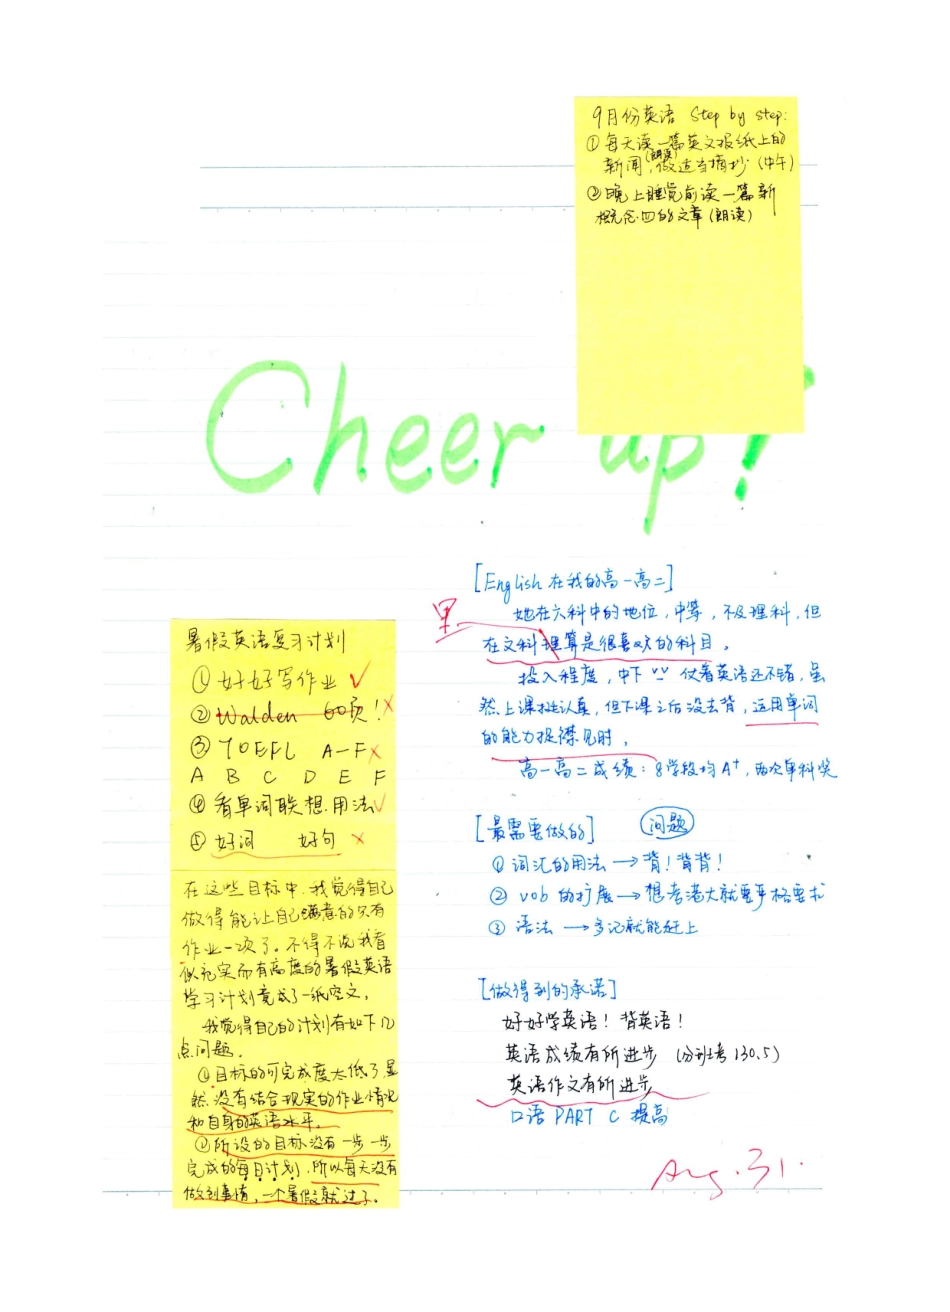 9月份英语 Step by step:
①每天读一篇英文报纸上的
新闻(朗读),做适当摘抄(中午)
②晚上睡觉前读一篇新
概念四的文章(朗读)
Cheer up!
[English在我的高一高二]
她在六科中的地位,中等,不及理科,但
在文科里算是很喜欢的科目。
投入程度,中下 仗着英语还不错,虽
然上课挺认真,但下课之后没去背,运用单词
的能力捉襟见肘,
高一高二成绩:8学段均A+,两次单科奖
[最需要做的] 问题
①词汇的用法→背!背背!
②vob的扩展→想考清大就要严格要求
③语法→多记就能赶上
[做得到的承诺]
好好学英语!背英语!
英语成绩有所进步 (分班考130.5)
英语作文有所进步
口语 PART C 提高
Aug. 31.
暑假英语复习计划
①好好写作业 ✓
②Walden 60页!×
③TOEFL A-F×
A B C D E F
④看单词联想.用法✓
⑤好词 好句 ×
在这些目标中,我觉得自己
做得能让自己满意的只有
作业一项了。不得不说我看
似充实而有高度的暑假英语
学习计划竟成了一纸空文。
我觉得自己的计划有如下几
点问题。
①目标的可完成度太低了显
然没有结合现实的作业情况
和自身的英语水平。
②所设的目标没有一步一步
完成的每日计划,所以每天没有
做到事情,一个暑假就过了。